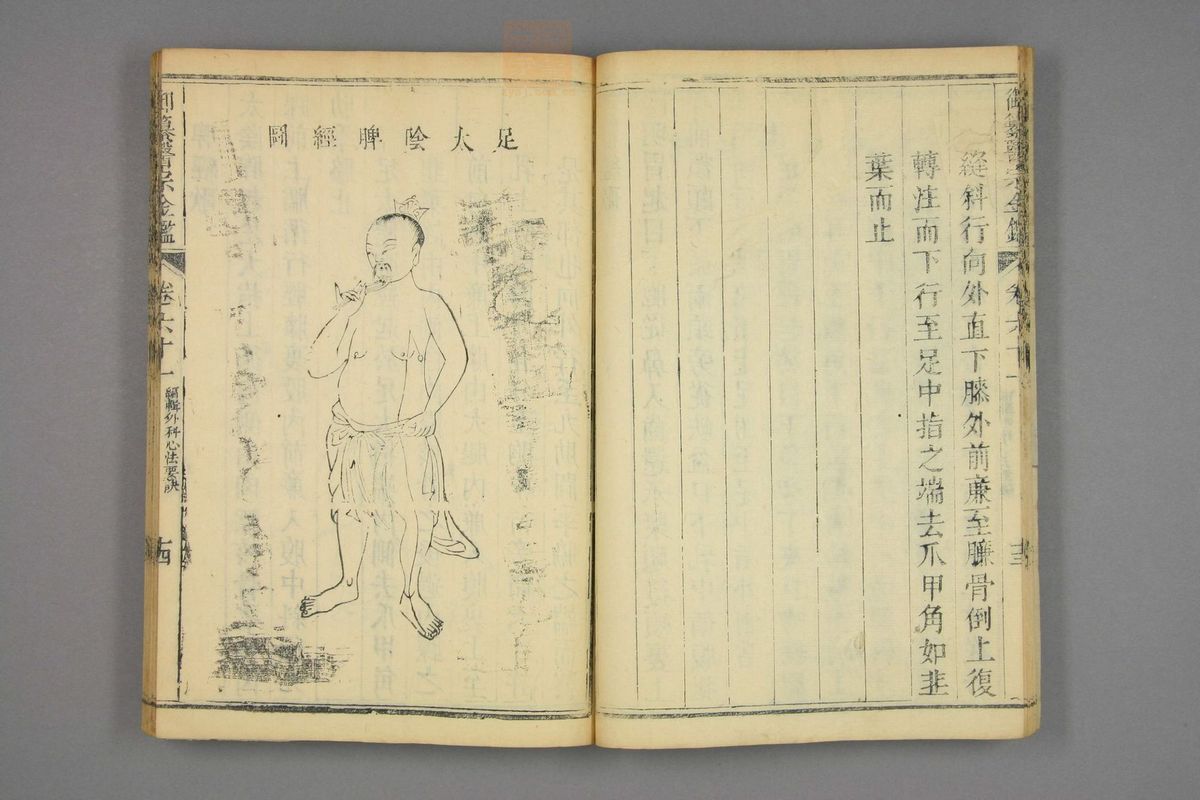 縫斜行向外直下膝外前廉至臁骨倒上復
轉注而下行至足中指之端去爪甲角如韭
葉而止
足太陰脾經圖
御纂醫宗金鑑
卷六十一
編輯外科心法要訣
十四